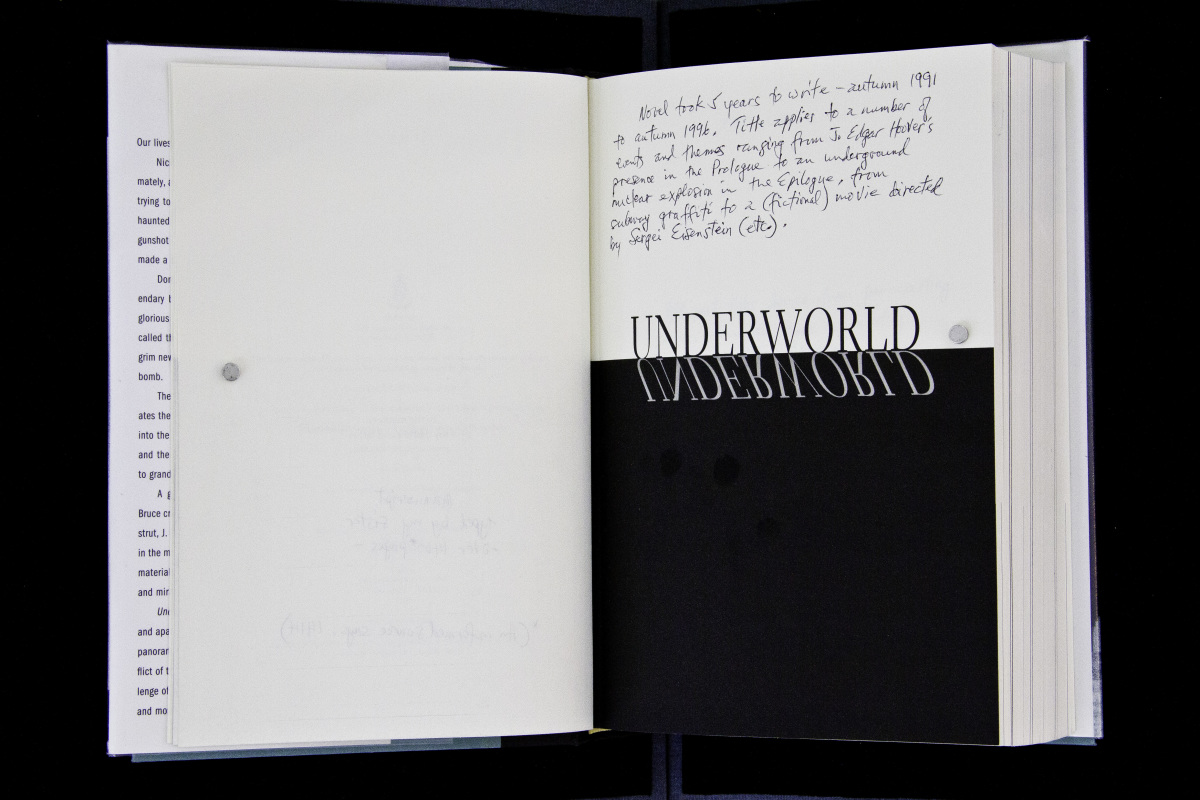 Our lives
Nic
mately, a
trying to
haunted
gunshot
made a
Don
endary b
glorious
called th
grim new
bomb.
The
ates the
into the
and the
to grand
A g
Bruce cr
strut, J.
in the m
material
and mir
Und
and apa
panoram
flict of t
lenge of
and mo
Novel took 5 years to write – autumn 1991
to autumn 1996. Title applies to a number of
events and themes ranging from J. Edgar Hoover's
presence in the Prologue to an underground
nuclear explosion in the Epilogue, from
subway graffiti to a (fictional) movie directed
by Sergei Eisenstein (etc.).
UNDERWORLD
UNDERWORLD